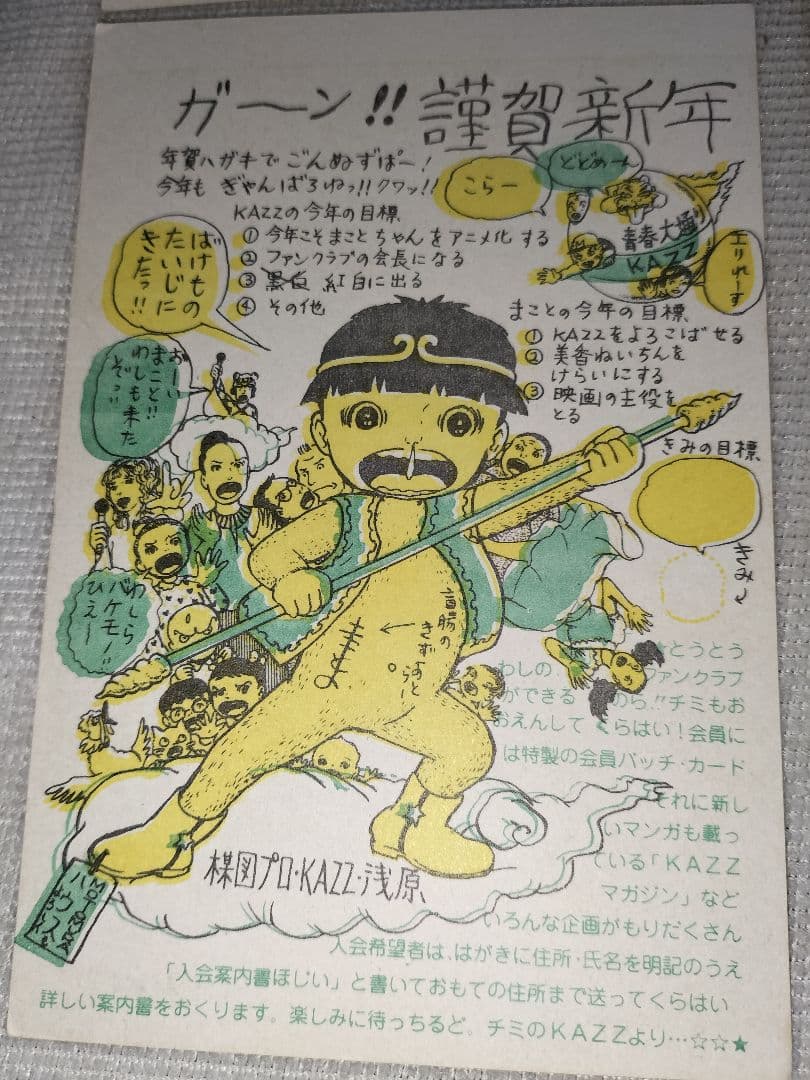 ガーン!!謹賀新年
年賀ハガキでごんぬずばー!
今年もぎゃんばろねっ!!クワッ!!
KAZZの今年の目標
① 今年こそまことちゃんをアニメ化する
② ファンクラブの会長になる
③ 紅白に出る
④ その他
こらー
どどめーん
青春大通り
KAZZ
エリれーす
ばけもの
たいじに
きたっ!!
まことの今年の目標
① KAZZをよろこばせる
② 美香ねいちんを
けらいにする
③ 映画の主役を
とる
おーい
まこと!!
わしも来た
ぞっ!!
きみの目標
きみ
わしら
バケモノ!!
ひえー
盲腸の
きずあと
らー
とうとう
わしの
ファンクラブ
ができる
から!!チミもお
おえんしてくらはい!会員に
は特製の会員バッチ・カード
それに新し
いマンガも載っ
ている「KAZZ
マガジン」など
いろんな企画がもりだくさん
入会希望者は、はがきに住所・氏名を明記のうえ
「入会案内書ほじい」と書いておもての住所まで送ってくらはい
詳しい案内書をおくります。楽しみに待っちるど。チミのKAZZより…☆☆★
楳図プロ・KAZZ・浅原
ハウス